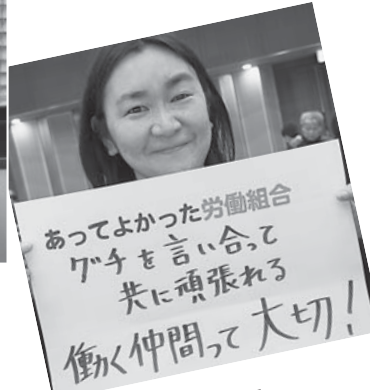 あってよかった労働組合
グチを言い合って
共に頑張れる
働く仲間って大切！